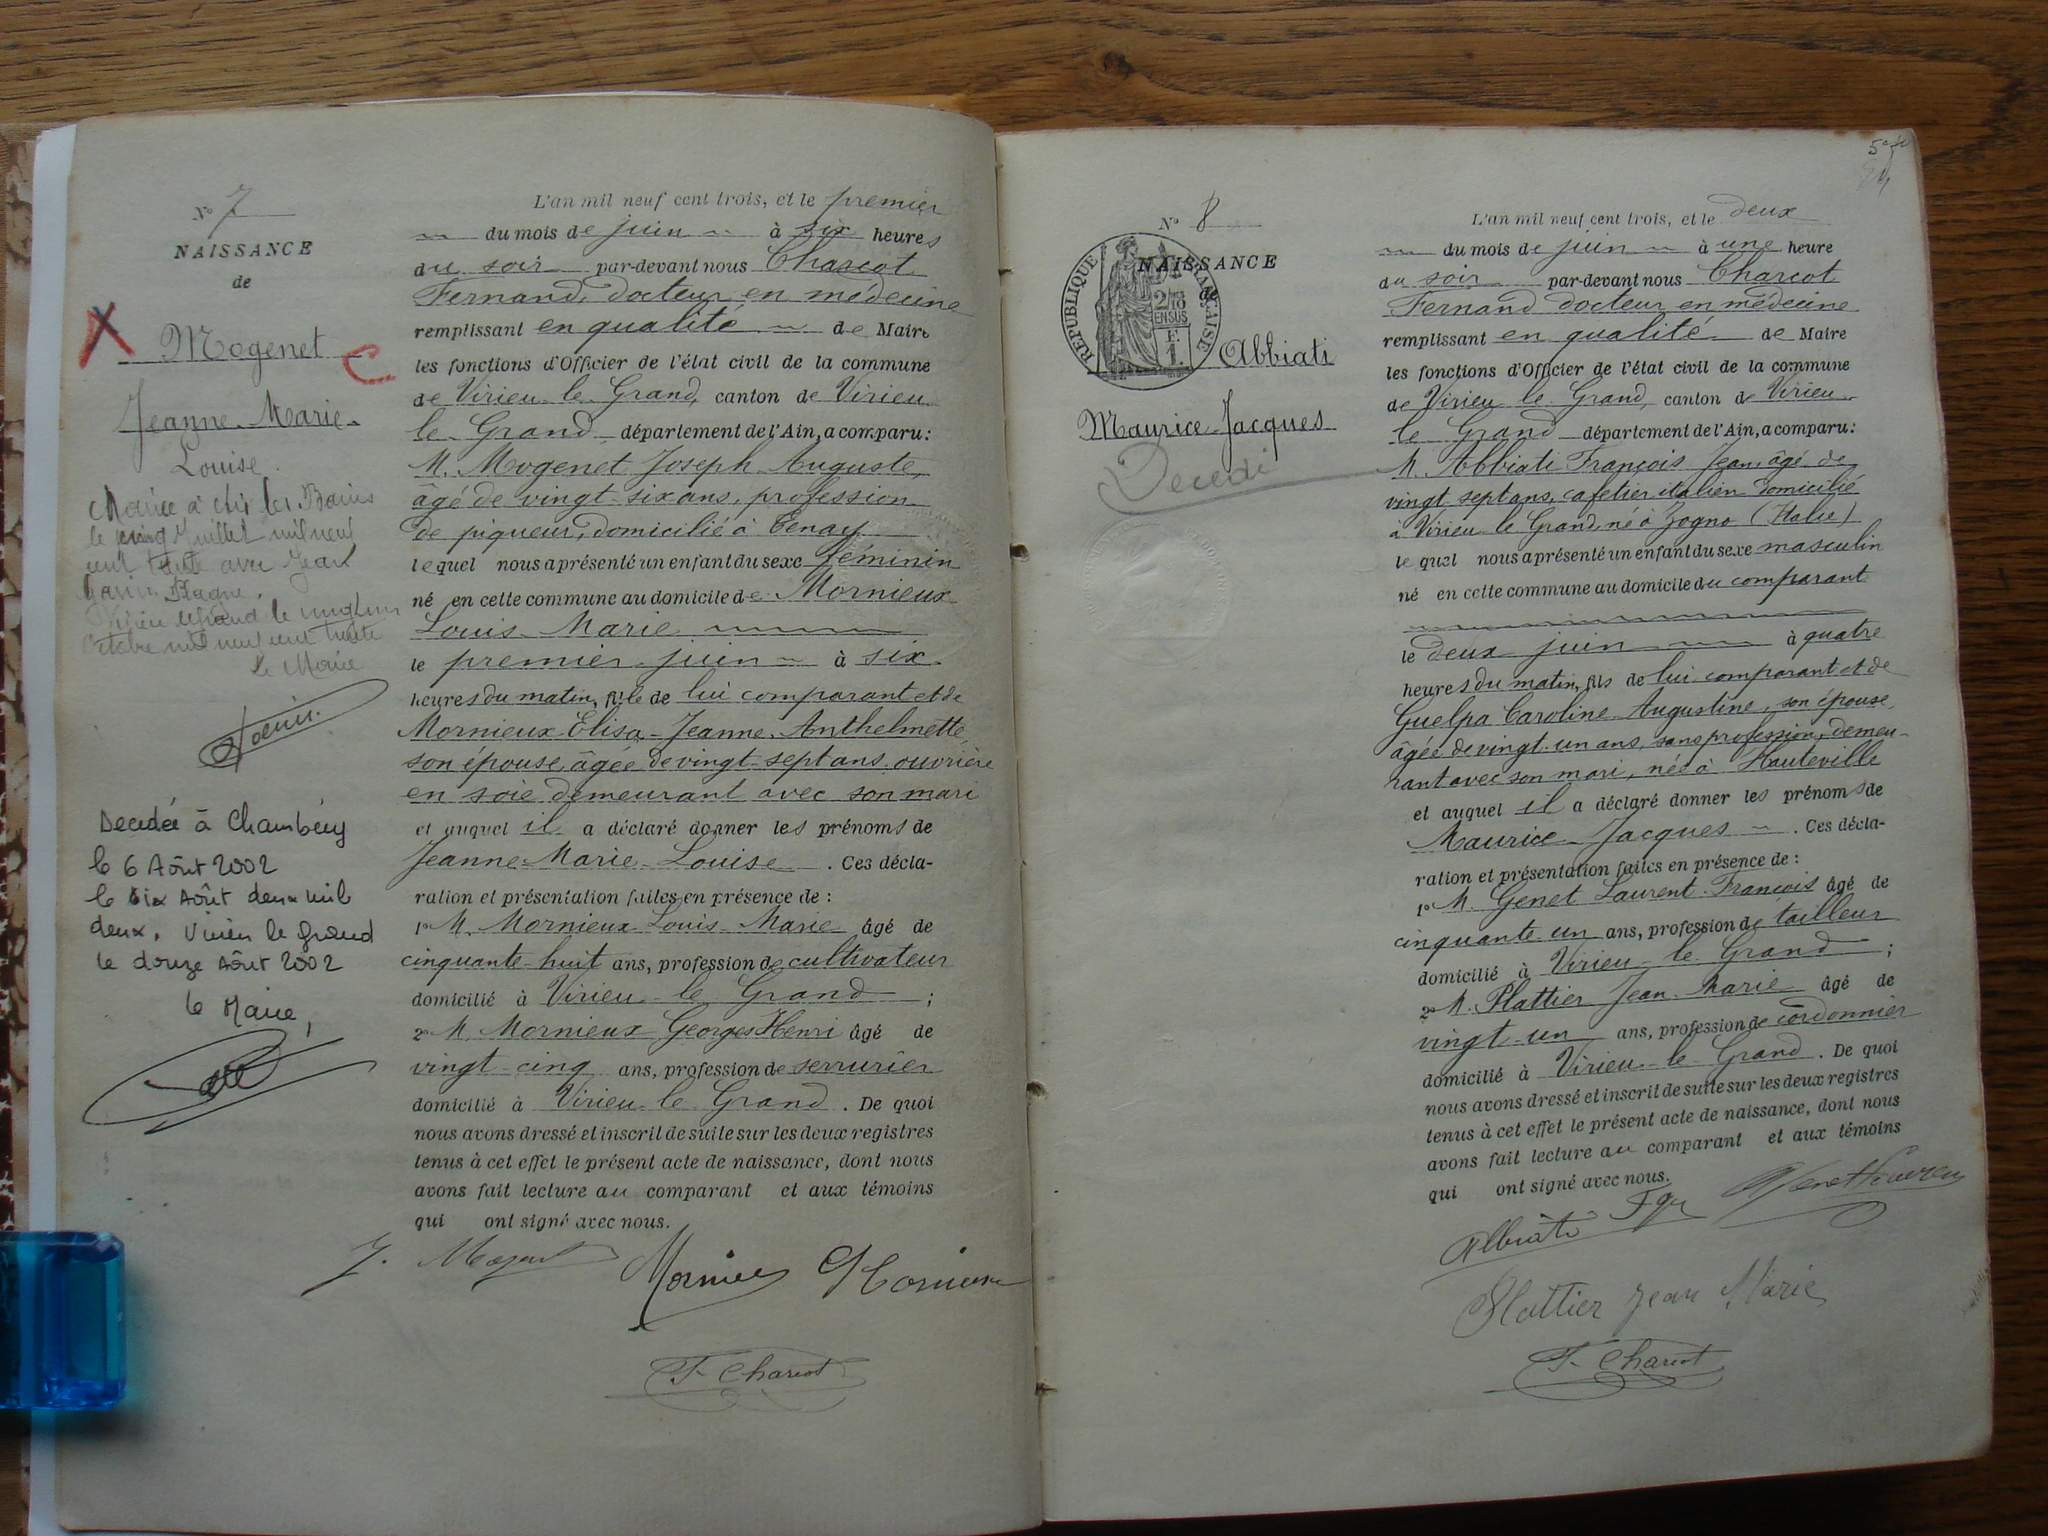 N° 7
NAISSANCE
de
Mogenet
Jeanne-Marie-
Louise.
Mariée à Aix les Bains
le cinq Juillet mil neuf
cent trente avec Jean
Marin.
Virieu le Grand le vingt un
Octobre mil neuf cent trente
Le Maire
Decedée à Chambéry
le 6 Août 2002
le six Août deux mil
deux. Virieu le Grand
le douze Août 2002
le Maire,
L'an mil neuf cent trois, et le premier
du mois de juin à six heures
du soir par-devant nous Charcot
Fernand, docteur en médecine
remplissant en qualité de Maire
les fonctions d'Officier de l'état civil de la commune
de Virieu-le-Grand, canton de Virieu-
le-Grand département de l'Ain, a comparu:
M. Mogenet Joseph-Auguste,
âgé de vingt-six ans, profession
de piqueur, domicilié à Tenay
lequel nous a présenté un enfant du sexe féminin
né en cette commune au domicile de Mornieux
Louis-Marie
le premier juin à six
heures du matin, fille de lui comparant et de
Mornieux Elisa-Jeanne-Anthelmette
son épouse, âgée de vingt-sept ans, ouvrière
en soie demeurant avec son mari
et auquel il a déclaré donner les prénoms de
Jeanne-Marie-Louise. Ces décla-
ration et présentation faites en présence de:
1° M. Mornieux Louis-Marie âgé de
cinquante-huit ans, profession de cultivateur
domicilié à Virieu-le-Grand;
2° M. Mornieux Georges Henri âgé de
vingt-cinq ans, profession de serrurier
domicilié à Virieu-le-Grand. De quoi
nous avons dressé et inscrit de suite sur les deux registres
tenus à cet effet le présent acte de naissance, dont nous
avons fait lecture au comparant et aux témoins
qui ont signé avec nous.
J. Mogenet Mornieux G Mornieux
F. Charcot
N° 8
RÉPUBLIQUE FRANÇAISE
NAISSANCE
de
Abbiati
Maurice-Jacques
Decedé
L'an mil neuf cent trois, et le deux
du mois de juin à une heure
du soir par-devant nous Charcot
Fernand docteur en médecine
remplissant en qualité de Maire
les fonctions d'Officier de l'état civil de la commune
de Virieu le Grand, canton de Virieu-
le Grand département de l'Ain, a comparu:
M. Abbiati François Jean, âgé de
vingt sept ans, cafetier italien domicilié
à Virieu le Grand, né à Zogno (Italie)
lequel nous a présenté un enfant du sexe masculin
né en cette commune au domicile du comparant
le deux juin à quatre
heures du matin, fils de lui comparant et de
Guelpa Caroline Augustine, son épouse,
âgée de vingt-un ans, sans profession, demeu-
rant avec son mari, née à Hauteville
et auquel il a déclaré donner les prénoms de
Maurice Jacques. Ces décla-
ration et présentation faites en présence de:
1° M. Genet Laurent-François âgé de
cinquante-un ans, profession de tailleur
domicilié à Virieu-le-Grand;
2° M. Plattier Jean-Marie âgé de
vingt-un ans, profession de cordonnier
domicilié à Virieu-le-Grand. De quoi
nous avons dressé et inscrit de suite sur les deux registres
tenus à cet effet le présent acte de naissance, dont nous
avons fait lecture au comparant et aux témoins
qui ont signé avec nous.
Abbiati Genet Laurent
Plattier Jean Marie
F. Charcot